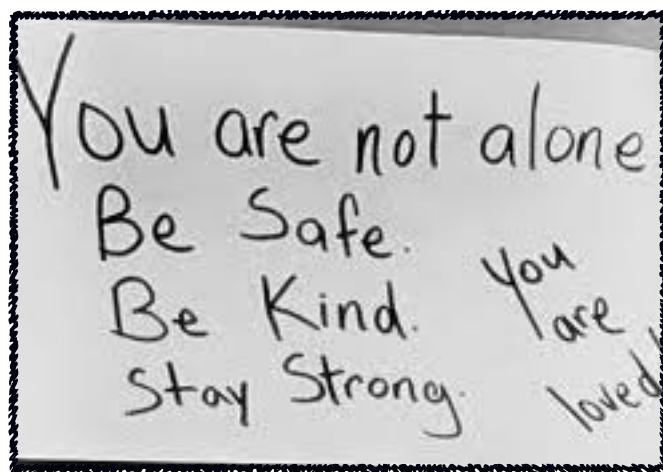 You are not alone
Be Safe.
Be Kind.
Stay Strong.
You
are
loved!